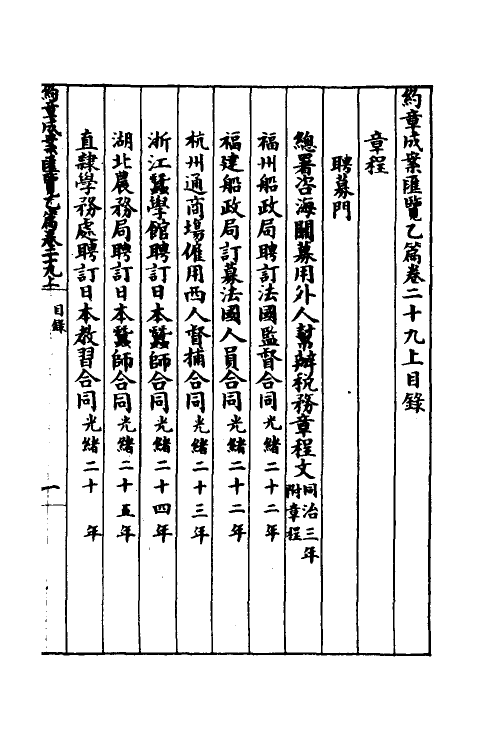 約章成案匯覽乙篇卷二十九上目錄
章程
聘募門
總署咨海關募用外人幫辦稅務章程文同治三年附章程
福州船政局聘訂法國監督合同光緒二十二年
福建船政局訂募法國人員合同光緒二十二年
杭州通商場僱用西人督捕合同光緒二十三年
浙江蠶學館聘訂日本蠶師合同光緒二十四年
湖北農務局聘訂日本蠶師合同光緒二十五年
直隸學務處聘訂日本教習合同光緒二十 年
約章成案匯覽乙篇卷二十九上 目錄 一